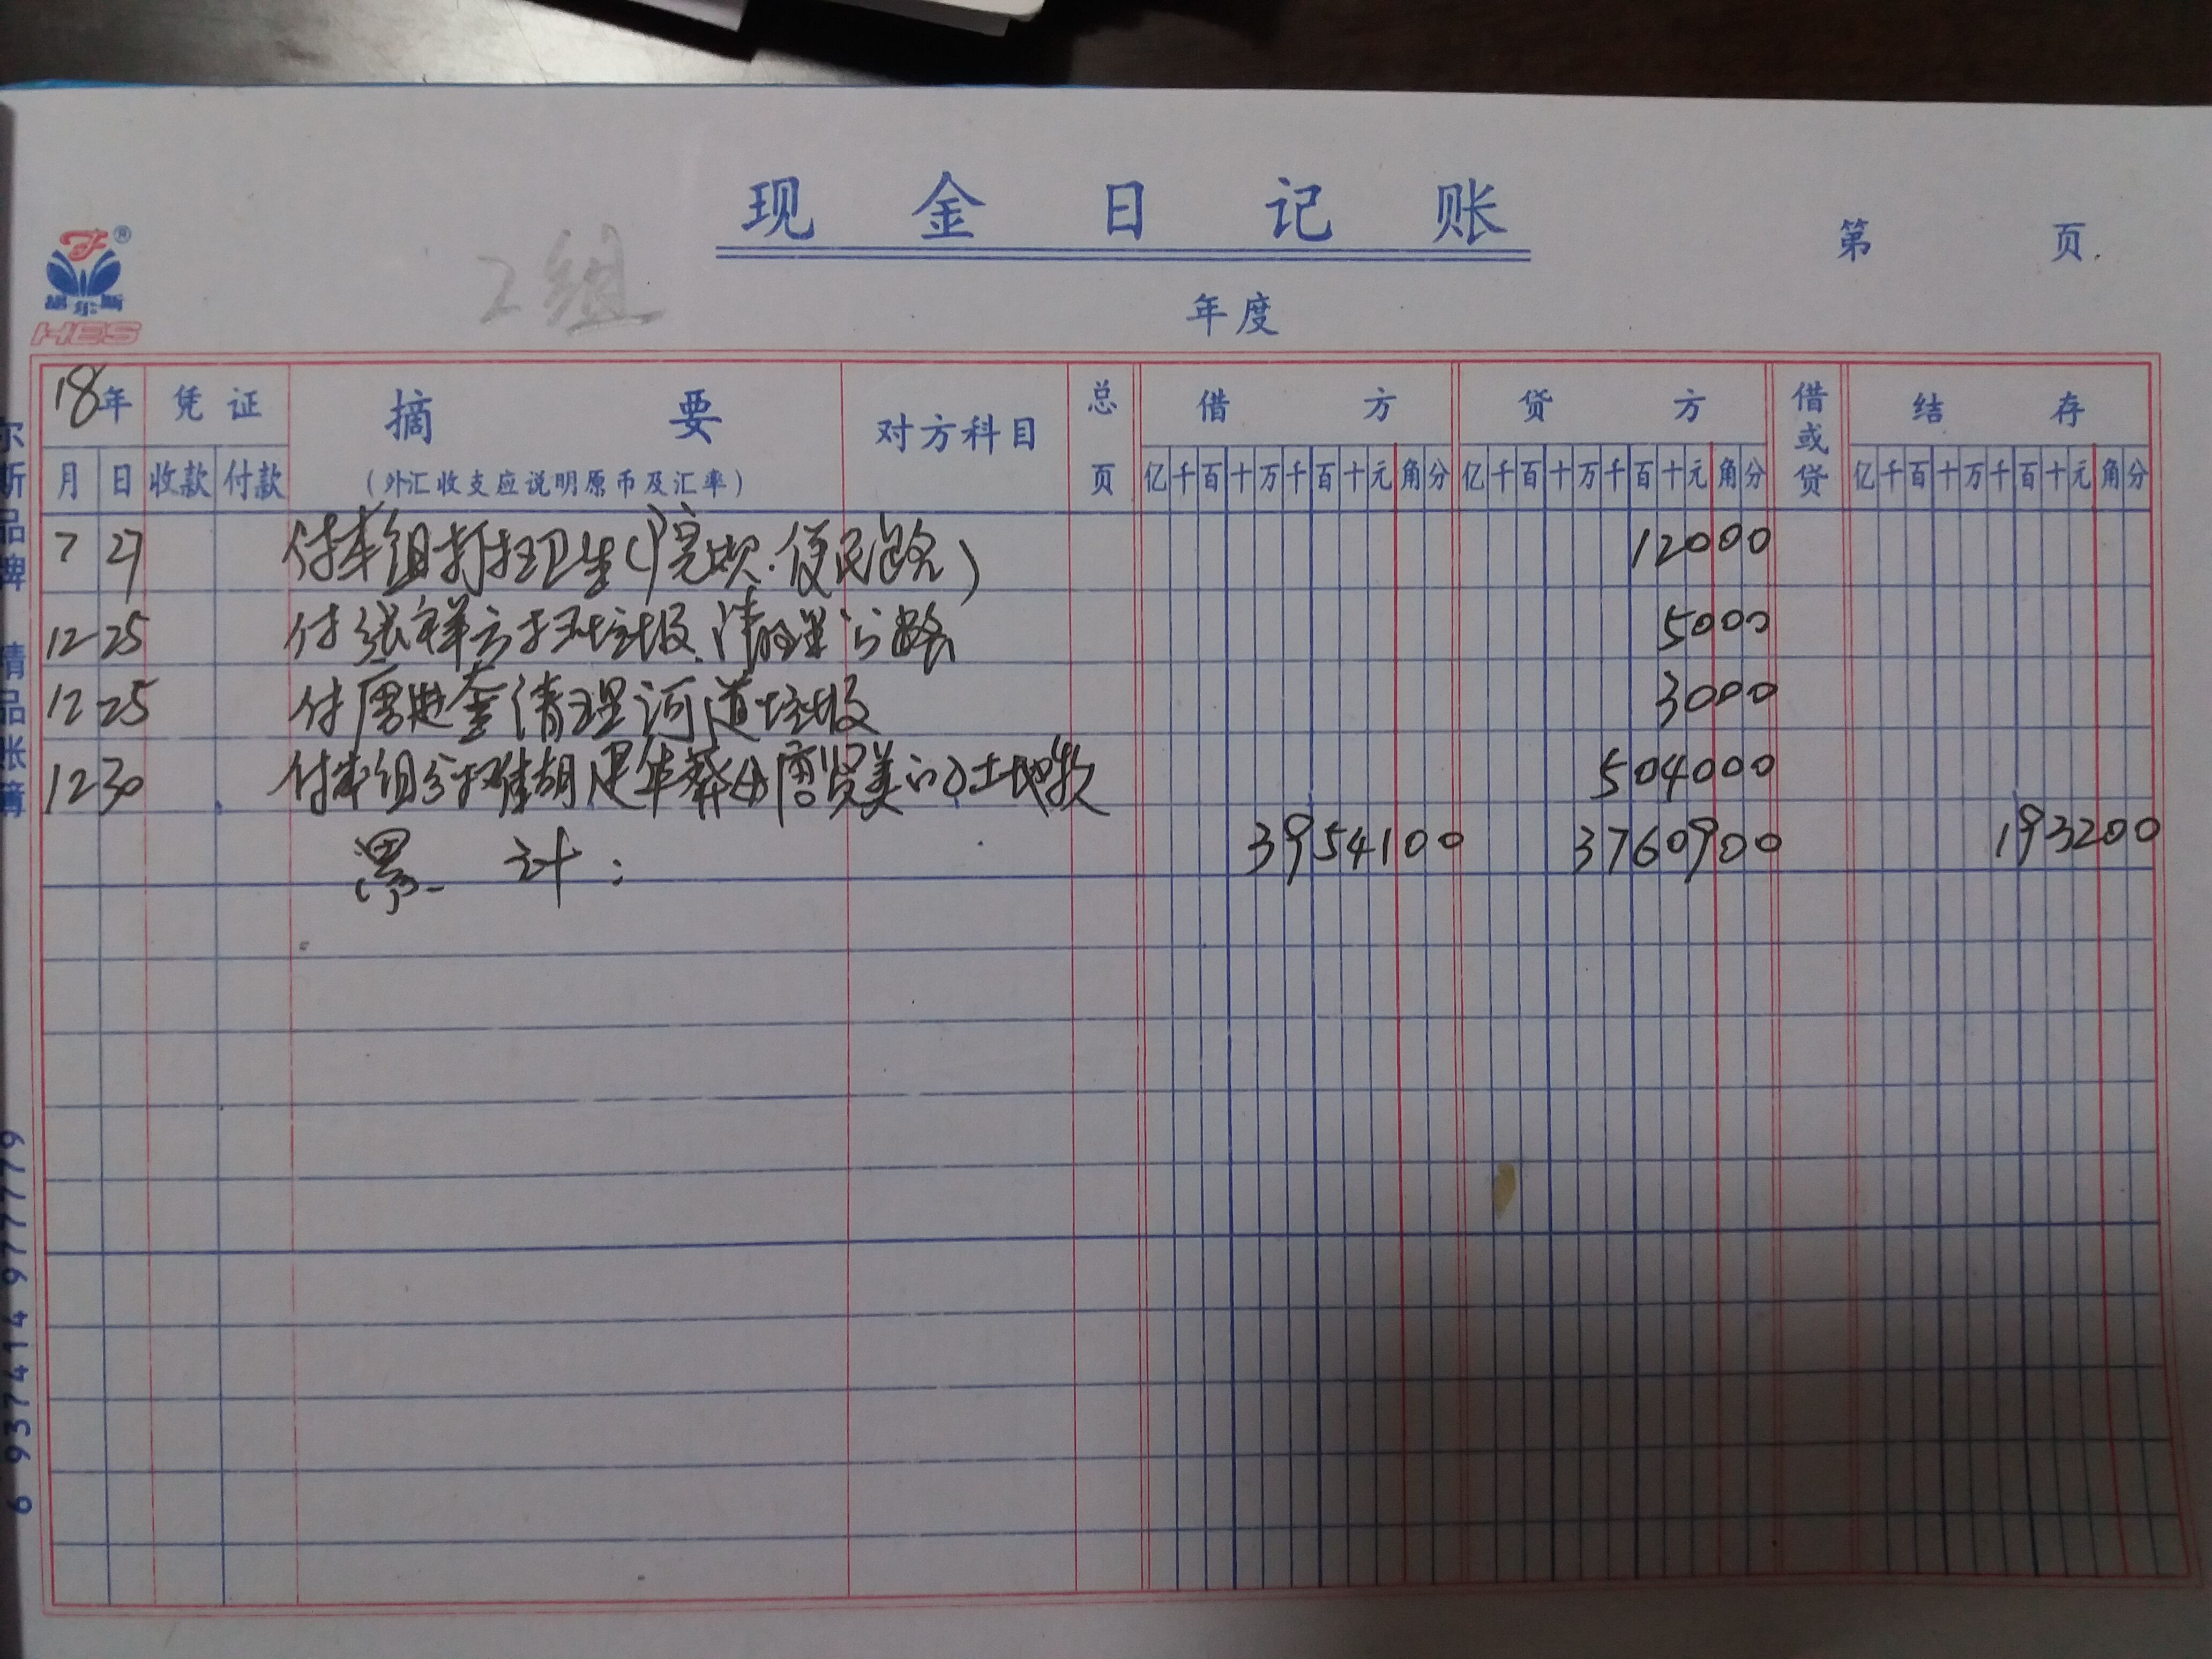 现金日记账
第 页
2组
年度
胡尔斯
HES
18年 凭证 摘要 对方科目 总页 借方 贷方 借或贷 结存
月 日 收款 付款 (外汇收支应说明原币及汇率) 亿千百十万千百十元角分 亿千百十万千百十元角分 亿千百十万千百十元角分
7 27 付本组打扫卫生(院坝.便民路) 12000
12 25 付张祥云扫垃圾.清理公路 5000
12 25 付唐 清理河道垃圾 3000
12 30 付本组分 胡 年葬 唐贤美 土地款 504000
累计: 3954100 3760900 193200
尔斯品牌 精品账簿
6 937414 977779